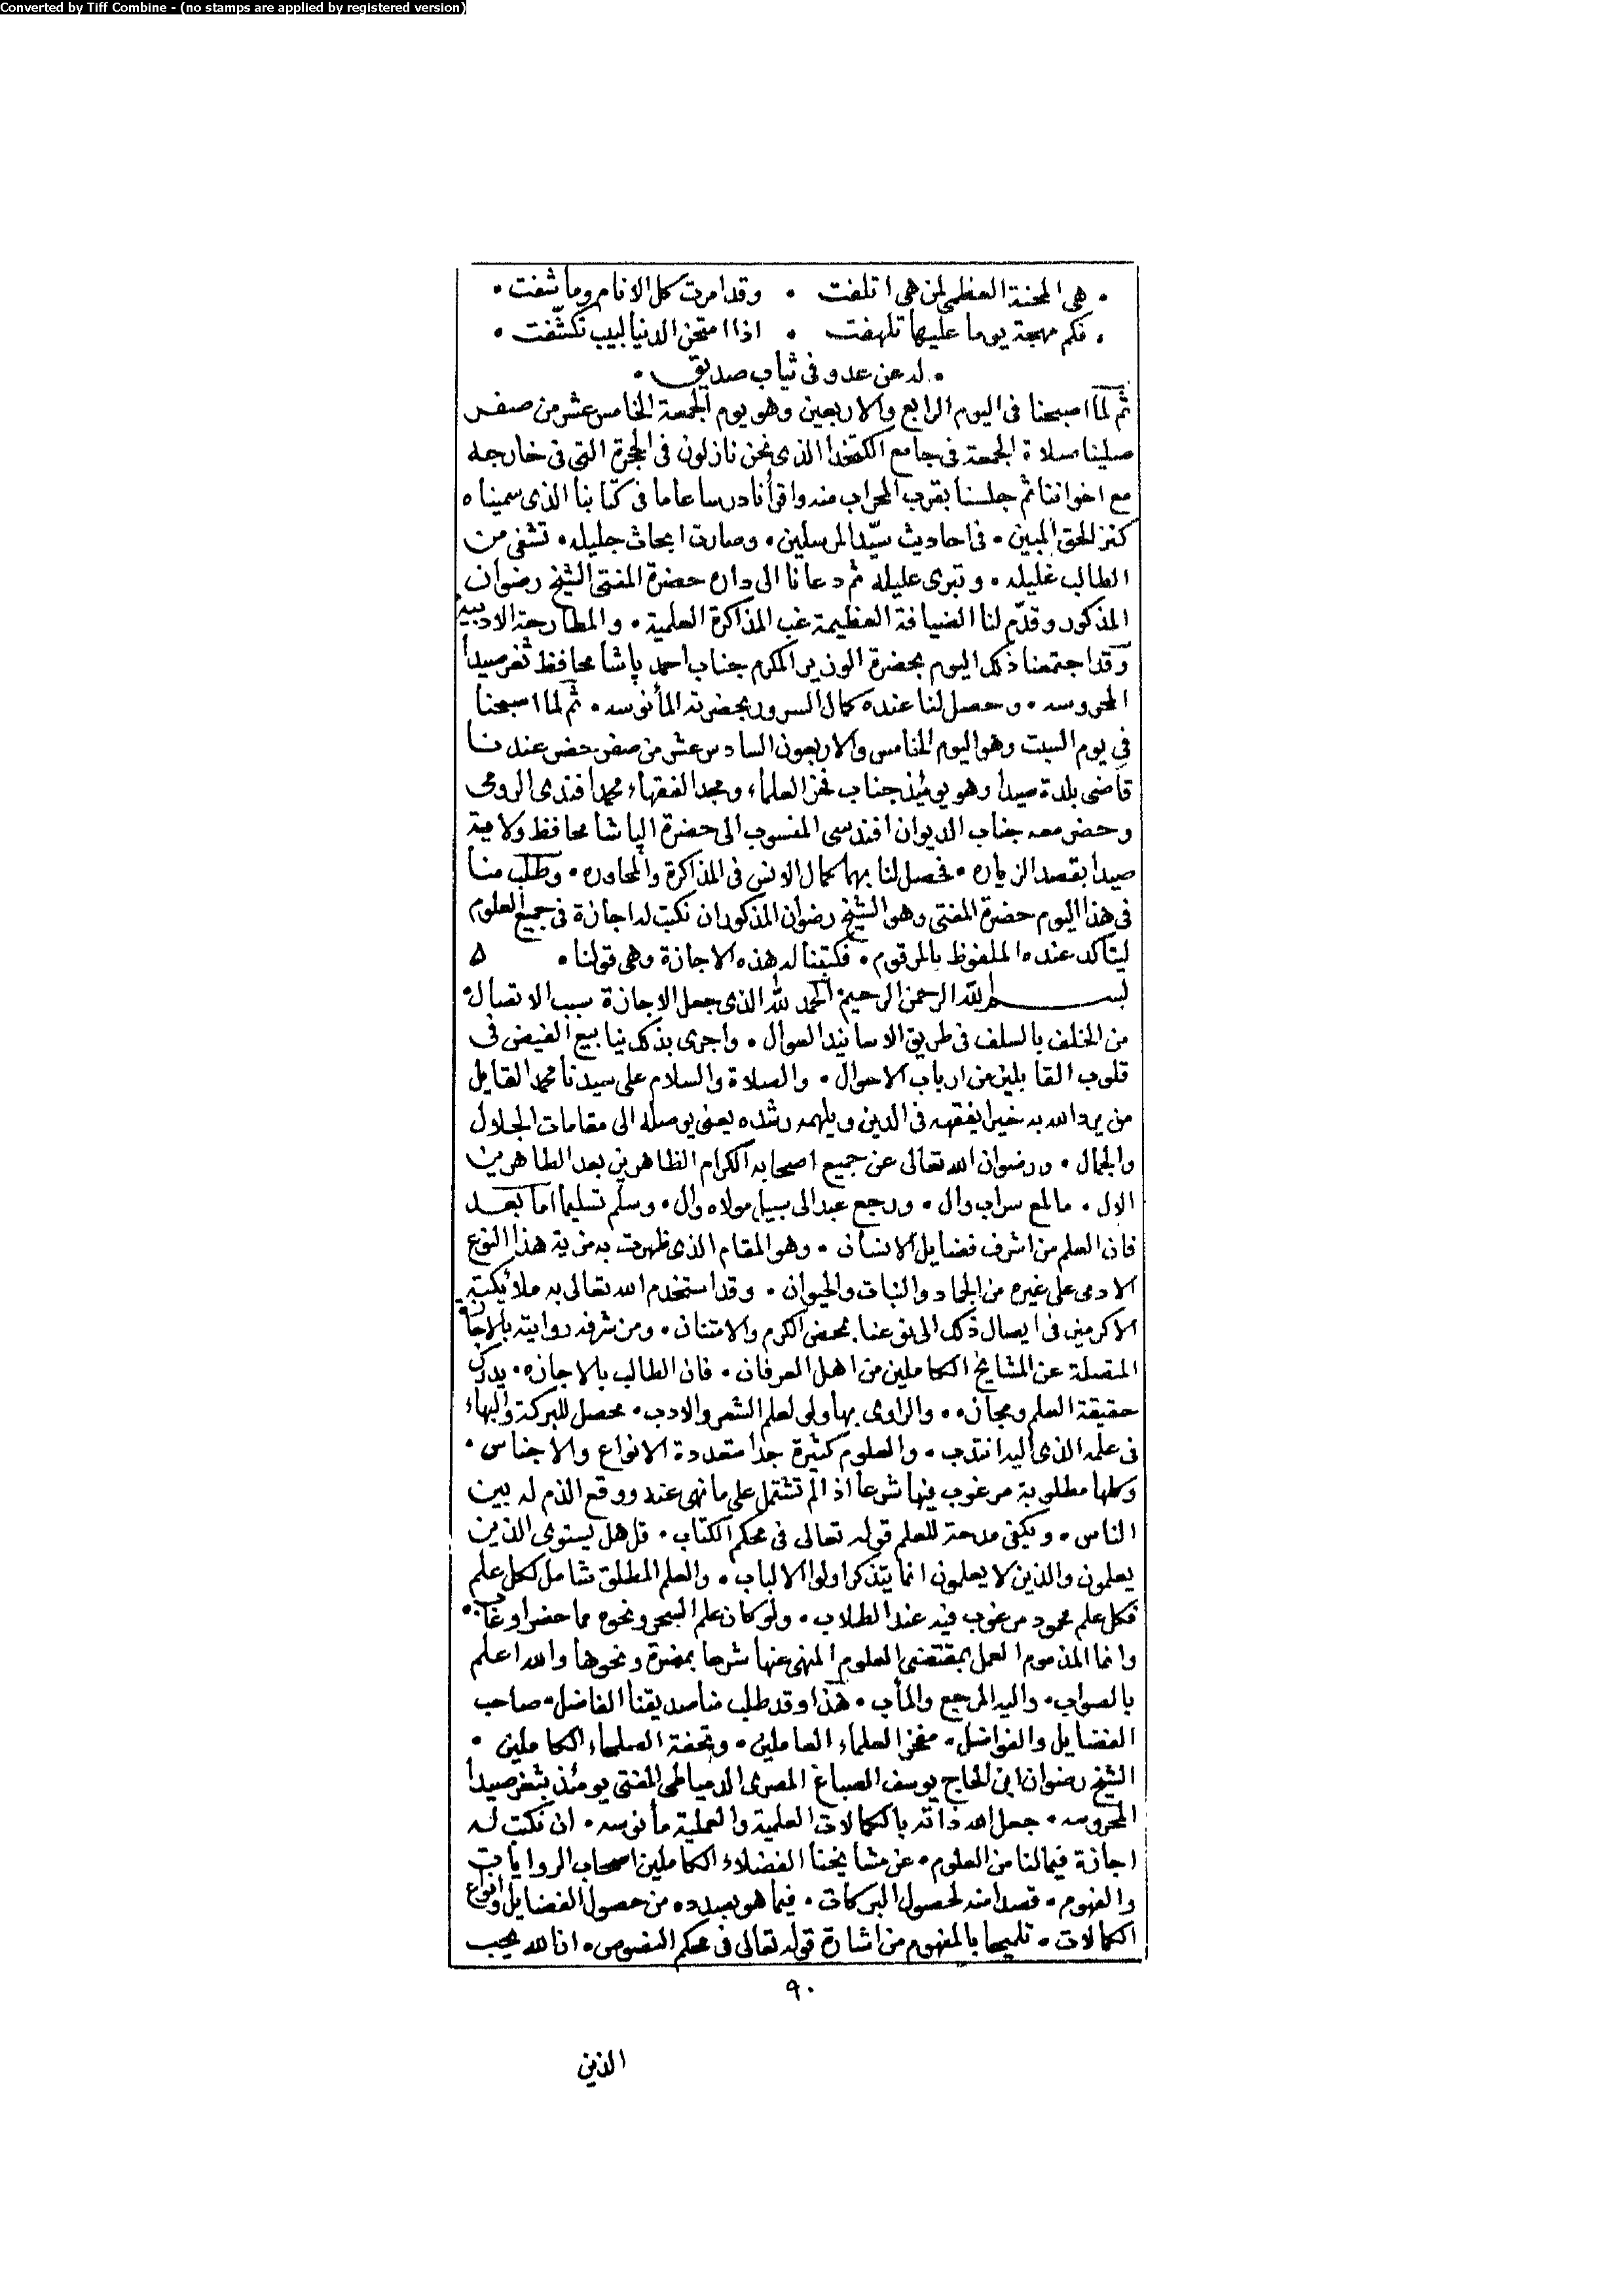 Converted by Tiff Combine - (no stamps are applied by registered version)
• هى المحنة العظمى لمن هى اتلفت • وقد امرت كل الانام وما شفت •
• فكم مهجة يوما عليها تلهفت • اذا امتحن الدنيا لبيب تكشّفت •
• له عن عدو فى ثياب صديق •
ثم لما اصبحنا فى اليوم الرابع والاربعين وهو يوم الجمعة الخامس عشر من صفر
صلينا صلاة الجمعة فى جامع الكتخدا الذى نحن نازلون فى الحجرة التى فى خارجه
مع اخواننا ثم جلسنا بقرب المحراب منه واقرأنا درسا عاما فى كتابنا الذى سميناه
كنز الحق المبين • فى احاديث سيّد المرسلين • وصارت ابحاث جليله • تشفى من
الطالب غليله • وتبرى عليله ثم دعانا الى داره حضرة المفتى الشيخ رضوان
المذكور وقدّم لنا الضيافة العظيمة غب المذاكرة العلمية • والمطارحة الادبية
وقد اجتمعنا ذلك اليوم بحضرة الوزير المكرم جناب احمد پاشا محافظ ثغر صيدا
المحروسه • وحصل لنا عنده كمال السرور بحضرته المأنوسه • ثم لما اصبحنا
فى يوم السبت وهو اليوم الخامس والاربعون السادس عشر من صفر حضر عندنا
قاضى بلدة صيدا وهو يومئذ جناب فخر العلماء ومجد الفقهاء محمد افندى الرومى
وحضر معه جناب الديوان افندسى المنسوب الى حضرة الپاشا محافظ ولاية
صيدا بقصد الزياره • فحصل لنا بهما كمال الانس فى المذاكرة والمحاوره • وطلب منا
فى هذا اليوم حضرة المفتى وهو الشيخ رضوان المذكور ان نكتب له اجازة فى جميع العلوم
ليتأكد عنده الملفوظ بالمرقوم • فكتبنا له هذه الاجازة وهى قولنا • ه
بسم الله الرحمن الرحيم الحمد لله الذى جعل الاجازة سبب الاتصال •
من الخلف بالسلف فى طريق الاسانيد العوال • واجرى بذلك ينابيع الفيض فى
قلوب القابلين من ارباب الاحوال • والصلاة والسلام على سيدنا محمد القايل
من يرد الله به خيرا يفقهه فى الدين ويلهمه رشده يعنى يوصله الى مقامات الجلال
والجمال • ورضوان الله تعالى عن جميع اصحابه الكرام الظاهرين بعد الطاهرين
الال • ما لمع سراب وال • ورجع عبد الى سبيل مولاه وال • وسلم تسليما اما بعد
فان العلم من اشرف فضايل الانسان • وهو المقام الذى ظهرت به مزية هذا النوع
الادمى على غيره من الجماد والنبات والحيوان • وقد استخدم الله تعالى به ملائكته
الاكرمين فى ايصال ذلك الى نوعنا بمحض الكرم والامتنان • ومن شرفه روايته بالاجازة
المتصلة عن المشايخ الكاملين من اهل العرفان • فان الطالب بالاجازه • يدرك
حقيقة العلم ومجازه • والراوى بها ولى لعلم الشعر والادب • محصل للبركة والبهاء
فى علمه الذى اليه انتدب • والعلوم كثيرة جدا متعددة الانواع والاجناس •
وكلها مطلوبة مرغوب فيها شرعا اذا لم تشتمل على ما نهى عنه ووقع الذم له بين
الناس • ويكفى مدحة للعلم قوله تعالى فى محكم الكتاب • قل هل يستوى الذين
يعلمون والذين لا يعلمون انما يتذكر اولوا الالباب • والعلم المطلق شامل لكل علم
فكل علم محمود مرغوب فيه عند الطلاب • ولو كان علم السحر ونحوه مما حضر او غاب •
وانما المذموم العمل بمقتضى العلوم المنهى عنها شرعا بمضرة ونحوها والله اعلم
بالصواب • واليه المرجع والمآب • هذا وقد طلب منا صديقنا الفاضل • صاحب
الفضايل والفواضل • مفخر العلماء العاملين • وتحفة الصلحاء الكاملين •
الشيخ رضوان ابن الحاج يوسف الصباغ المصرى الدمياطى المفتى يومئذ بثغر صيدا
المحروسه • جعل الله ذاته بالكمالات العلمية والعملية مأنوسه • ان نكتب له
اجازة فيما لنا من العلوم • عن مشايخنا الفضلاء الكاملين اصحاب الروايات
والفهوم • قصدا منه لحصول البركات • فيما هو بصدده من حصول الفضايل وانواع
الكمالات • تلميحا بالمفهوم من اشارة قوله تعالى فى محكم النصوص • ان الله يحب
٩٠
الذين